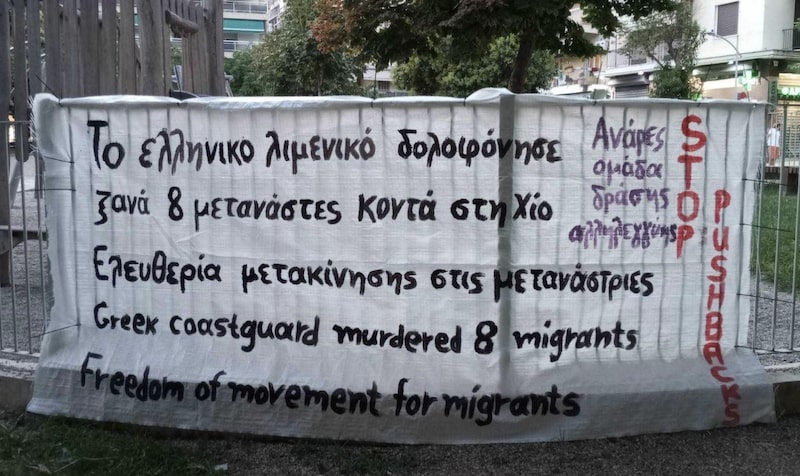 Το ελληνικο λιμενικό δολοφόνησε
ξανά 8 μετανάστες κοντά στη Χίο
Ελευθερία μετακίνησης στις μετανάστριες
Greek coastguard murdered 8 migrants
Freedom of movement for migrants
Ανάρες
ομάδα
δράσης
αλληλεγγύης
STOP
PUSHBACKS